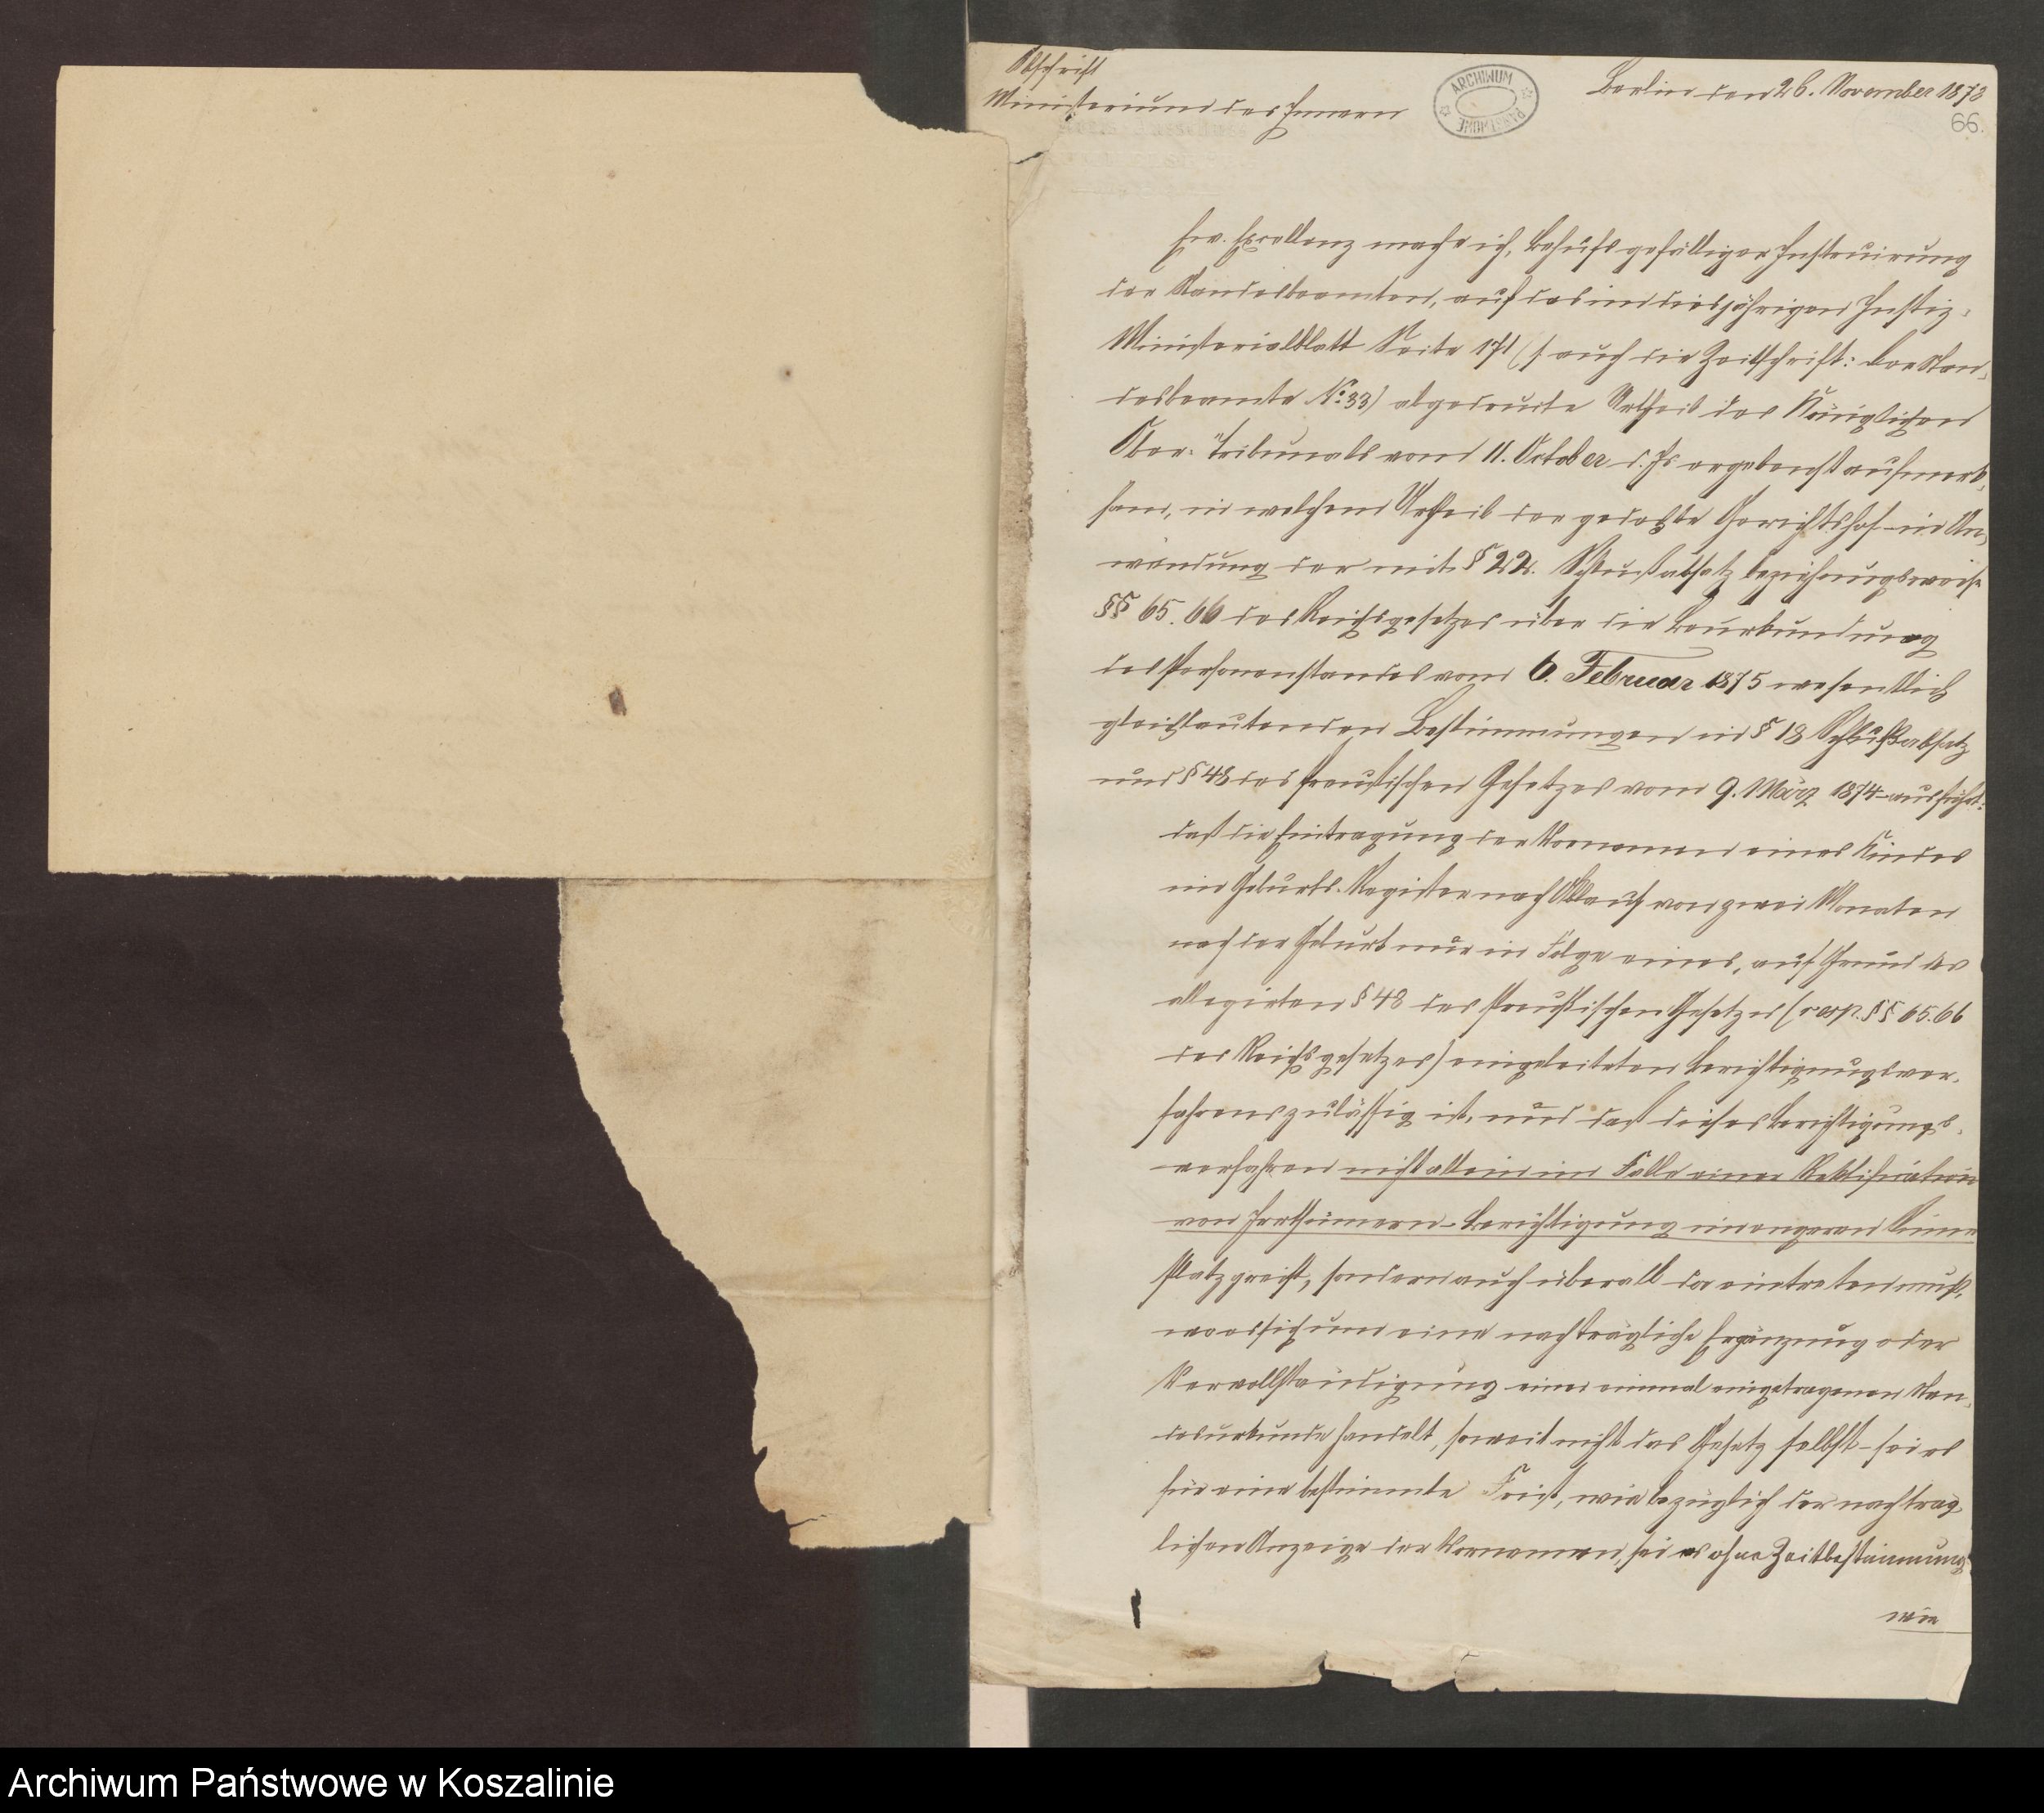 Abschrift
Ministerium des Innern
ARCHIWUM PAŃSTWOWE
Berlin den 26. November 1878
66.
Ew. Excellenz mache ich, behufs gefälliger Instruirung
der Standesbeamten, auf das im diesjährigen Justiz-
Ministerialblatt Seite 171 (s. auch die Zeitschrift: Der Stan-
desbeamte No. 33) abgedruckte Urtheil des Königlichen
Ober-Tribunals vom 11. October d. Js ergebenst aufmerk-
sam, in welchem Urtheil der gedachte Gerichtshof in An-
wendung der mit § 22. Schlußabsatz beziehungsweise
§§ 65. 66 des Reichsgesetzes über die Beurkundung
des Personenstandes vom 6. Februar 1875 wesentlich
gleichlautenden Bestimmungen in § 18 Schlußabsatz
und § 48 des Preußischen Gesetzes vom 9. März 1874 ausführt:
daß die Eintragung der Vornamen eines Kindes
im Geburts-Register nach Ablauf von zwei Monaten
nach der Geburt nur in Folge eines, auf Grund des
allegirten § 48 des Preußischen Gesetzes (resp. §§ 65. 66
des Reichsgesetzes) eingeleiteten Berichtigungsver-
fahrens zulässig ist, und daß dieses Berichtigungs-
verfahren nicht allein im Falle einer Rektifikation
von Irrthümern - Berichtigung im engeren Sinne
Platz greift, sondern auch überall da eintreten muß,
wo es sich um eine nachträgliche Ergänzung oder
Vervollständigung einer einmal eingetragenen Stan-
desurkunde handelt, soweit nicht das Gesetz selbst - sei es
für eine bestimmte Frist, wie bezüglich der nachträg-
lichen Anzeige der Vornamen, sei es ohne Zeitbestimmung
wie
Archiwum Państwowe w Koszalinie